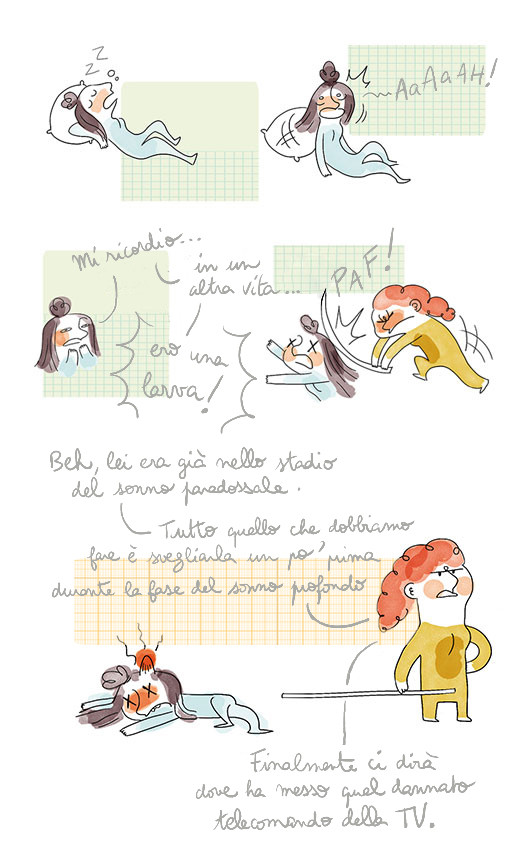 Z
Z
Z
AaAaAH!
Mi ricordio...
in un
altra vita...
ero una
larva!
PAF!
Beh, lei era già nello stadio
del sonno paradossale.
Tutto quello che dobbiamo
fare è svegliarla un po' prima
durante la fase del sonno profondo
Finalmente ci dirà
dove ha messo quel dannato
telecomando della TV.